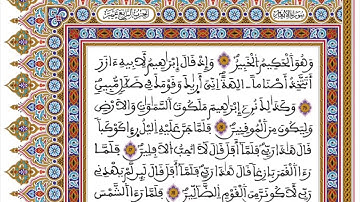 سورة الأنعام الحزب الرابع عشر
وَهُوَ اَلْحَكِيمُ اُلْخَبِيرُ وَإِذْ قَالَ إِبْرَٰهِيمُ لِأَبِيهِ ءَازَرَ
أَتَتَّخِذُ أَصْنَاماً اٰلِهَةً اِنِّيَ أَرَيٰكَ وَقَوْمَكَ فِي ضَلَٰلٍ مُّبِينٍ
وَكَذَٰلِكَ نُرِي إِبْرَٰهِيمَ مَلَكُوتَ اَلسَّمَٰوَٰتِ وَالْأَرْضِ
وَلِيَكُونَ مِنَ اَلْمُوقِنِينَ فَلَمَّا جَنَّ عَلَيْهِ اِليْلُ رَءٰا كَوْكَباً
قَالَ هَٰذَا رَبِّي فَلَمَّا أَفَلَ قَالَ لَا أُحِبُّ اُلْأَفِلِينَ فَلَمَّا
رَءَا اَلْقَمَرَ بَازِغاً قَالَ هَٰذَا رَبِّي فَلَمَّا أَفَلَ قَالَ لَئِن لَّمْ يَهْدِنِي
رَبِّي لَأَكُونَنَّ مِنَ اَلْقَوْمِ اِلضَّآلِّينَ فَلَمَّا رَءَا اَلشَّمْسَ